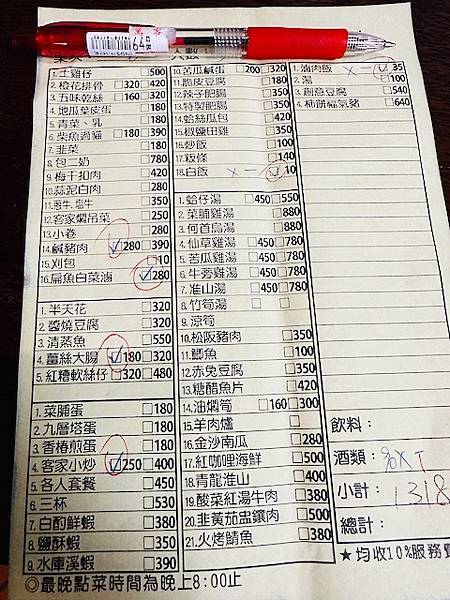 1. 土雞仔 □500
2. 橙花排骨 □320 □420
3. 五味乾絲 □160 □320
4. 地瓜菜皮蛋 □180
5. 青菜、乳 □180
6. 柴魚過貓 □180 □390
7. 韭菜 □180
8. 包二奶 □780
9. 梅干扣肉 □420
10. 蒜泥白肉 □280
11. 蔥牛. 塩牛 □350
12. 客家燜吊菜 □250
13. 小卷 □280
14. 鹹豬肉 ☑280 □390
15. 刈包 □10
16. 扁魚白菜滷 ☑280
1. 半天花 □320
2. 醬燒豆腐 □320
3. 清蒸魚 □550
4. 薑絲大腸 ☑180 □320
5. 紅糟軟絲仔 □320 □480
1. 菜脯蛋 □180
2. 九層塔蛋 □180
3. 香椿煎蛋 □180
4. 客家小炒 ☑250 □400
5. 各人套餐 □450
6. 三杯 □530
7. 白酌鮮蝦 □380
8. 鹽酥蝦 □350
9. 水庫溪蝦 □390
◎最晚點菜時間為晚上8:00止
10. 苦瓜鹹蛋 □200 □320
11. 脆皮豆腐 □180
12. 辣子肥腸 □350
13. 特製肥腸 □350
14. 蛤絲瓜 □420
15. 椒鹽田雞 □350
16. 炒飯 □100
17. 粄條 □140
18. 白飯 × 一 ☑10
1. 蛤仔湯 □450 □550
2. 菜脯雞湯 □880
3. 何首烏湯 □880
4. 仙草雞湯 □450 □780
5. 苦瓜雞湯 □450 □780
6. 牛蒡雞湯 □450 □780
7. 准山湯 □450 □780
8. 竹筍湯 □ □
9. 涼筍
10. 松阪豬肉 □350
11. 鯽魚 □100
12. 赤兔豆腐 □350
13. 糖醋魚片 □420
14. 油燜筍 □160 □300
15. 羊肉爐 □ □
16. 金沙南瓜 □280
17. 紅咖哩海鮮 □500
18. 青龍淮山 □400
19. 酸菜紅湯牛肉 □380
20. 韭黃茄盅鑲肉 □500
21. 火烤鯖魚 □380
1. 滷肉飯 × 一 ☑35
2. 湯 □100
3. 創意豆腐 □540
4. 柿餅福氣豬 □640
飲料：
酒類：
小計： 1318
總計：
★均收10%服務費